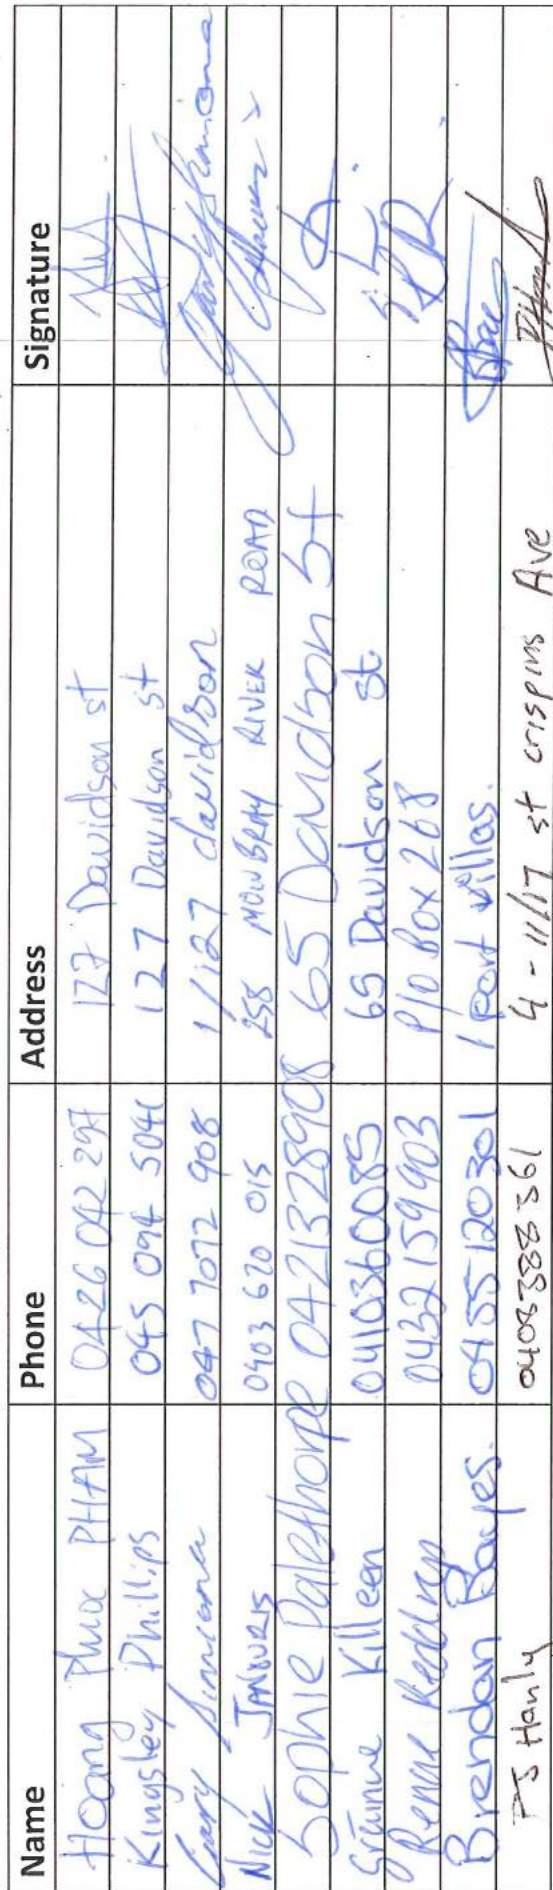 Name Phone Address Signature
Hoang Phuc PHAM 0426 042 297 127 Davidson st
Kingsley Phillips 045 094 5041 127 Davidson st
Gary Simiana 047 7072 908 1/127 davidson
Nick JANOURIS 0403 620 015 258 MOWBRAY RIVER ROAD
Sophie Palethorpe 0421328908 65 Davidson St
Grainne Killeen 0410360085 65 Davidson St.
Renae 0432 159 903 P/O Box 268
Brendan Bayes. 0455120301 1 Port villas.
PJ Hanly 0408388561 4 - 11/17 st crispins Ave